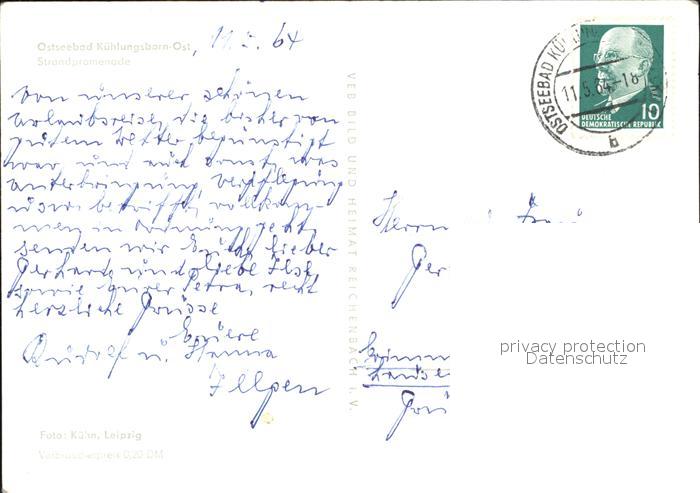 Ostseebad Kühlungsborn-Ost
Strandpromenade
, 11.5.64
Von unserer schönen
Urlaubsreise, die bisher von
gutem Wetter begünstigt
war, und auch sonst, was
Unterbringung, Verpflegung
usw. betrifft, vollkom-
men in Ordnung geht,
senden wir Euch, lieber
Gerhard und liebe Ilse,
sowie Eurer Petra, recht
herzliche Grüsse
Eure
Rudolf u. Hanna
VEB BILD UND HEIMAT REICHENBACH I. V.
OSTSEEBAD KÜHL
11.5.64-18
b
10
DEUTSCHE
DEMOKRATISCHE REPUBLIK
Herrn
Ger
privacy protection
Datenschutz
Foto: Kühn, Leipzig
Verbraucherpreis 0,20 DM